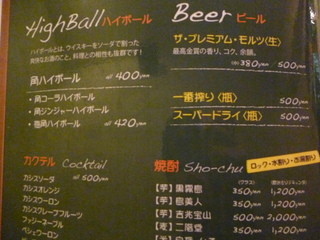 HighBall ハイボール
ハイボールとは、ウイスキーをソーダで割った
爽快なお酒のこと。料理との相性も抜群です!
角ハイボール all 400yen
・角コーラハイボール
・角ジンジャーハイボール
・亀甲ハイボール all 420yen
カクテル Cocktail
カシスソーダ all 500yen
カシスオレンジ
カシスウーロン
カシスグレープフルーツ
ファジーネーブル
ピーチウーロン
Beer ビール
ザ・プレミアム・モルツ〈生〉
最高金賞の香り、コク、余韻。
380yen 500yen
一番搾り〈瓶〉 500yen
スーパードライ〈瓶〉 500yen
焼酎 Sho-chu ロック・水割り・お湯割り
【芋】黒霧島 350yen 1,200yen
【芋】島美人 350yen 1,200yen
【芋】吉兆宝山 500yen 2,000yen
【麦】二階堂 350yen 1,200yen